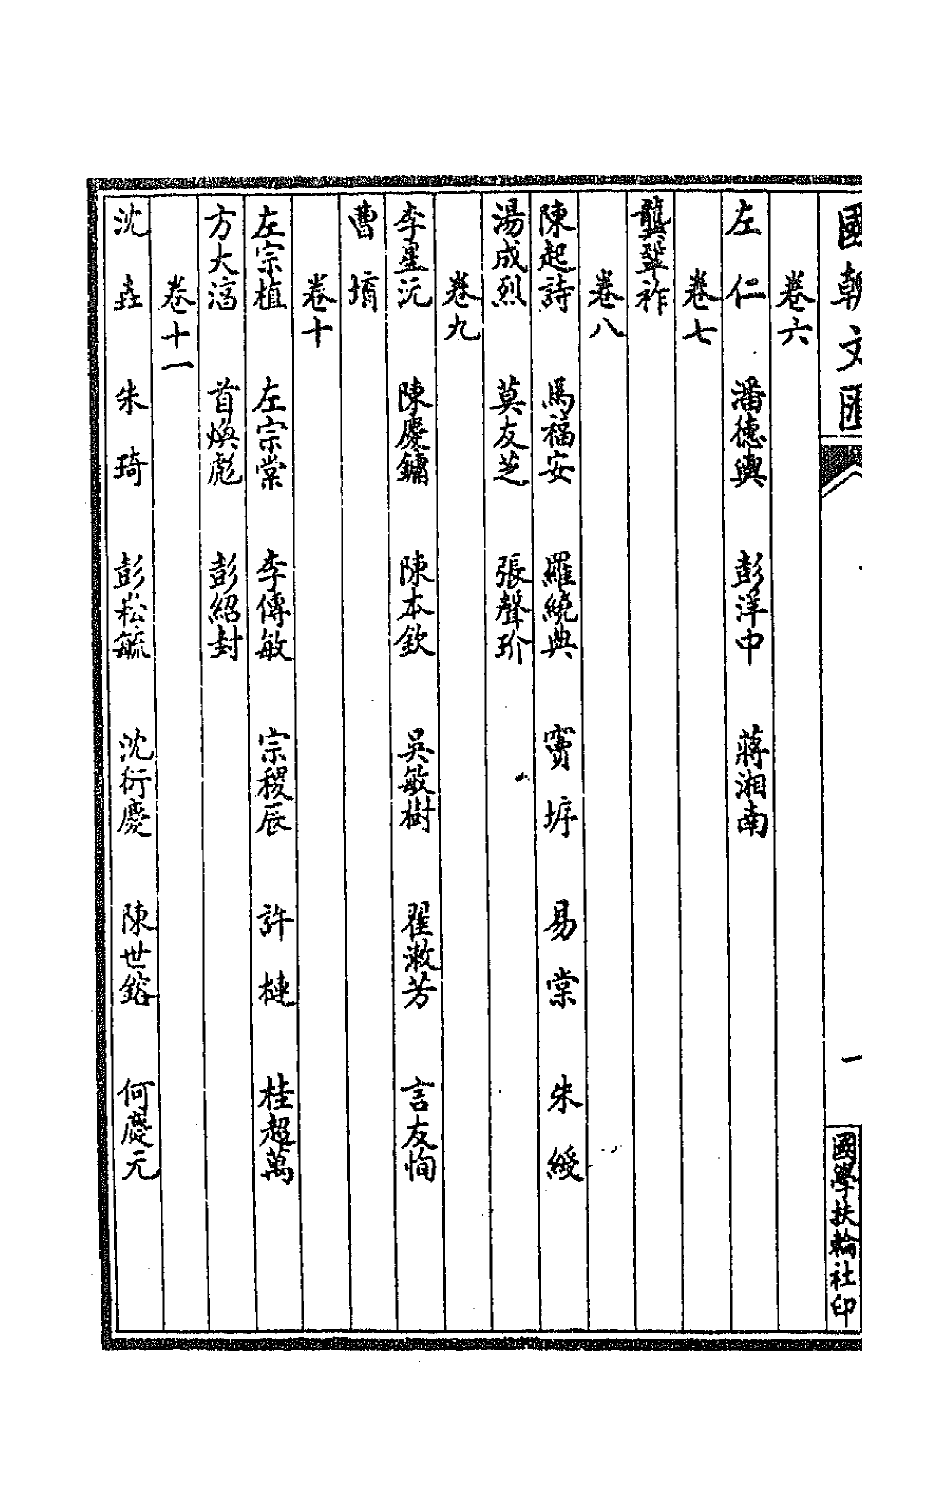 國朝文匯
一
國學扶輪社印
卷六
左仁 潘德輿 彭洋中 蔣湘南
卷七
龔鞏祚
卷八
陳起詩 馬福安 羅繞典 竇垿 易棠 朱綬
湯成烈 莫友芝 張聲玠
卷九
李星沅 陳慶鏞 陳本欽 吳敏樹 翟漱芳 言友恂
曹堉
卷十
左宗植 左宗棠 李傳敏 宗稷辰 許槤 桂超萬
方大淳 首煥彪 彭紹封
卷十一
沈垚 朱琦 彭崧毓 沈衍慶 陳世鎔 何慶元